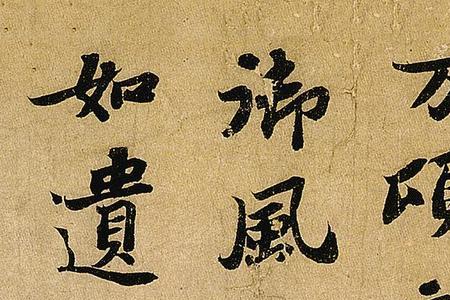 万頃
御風
如遺